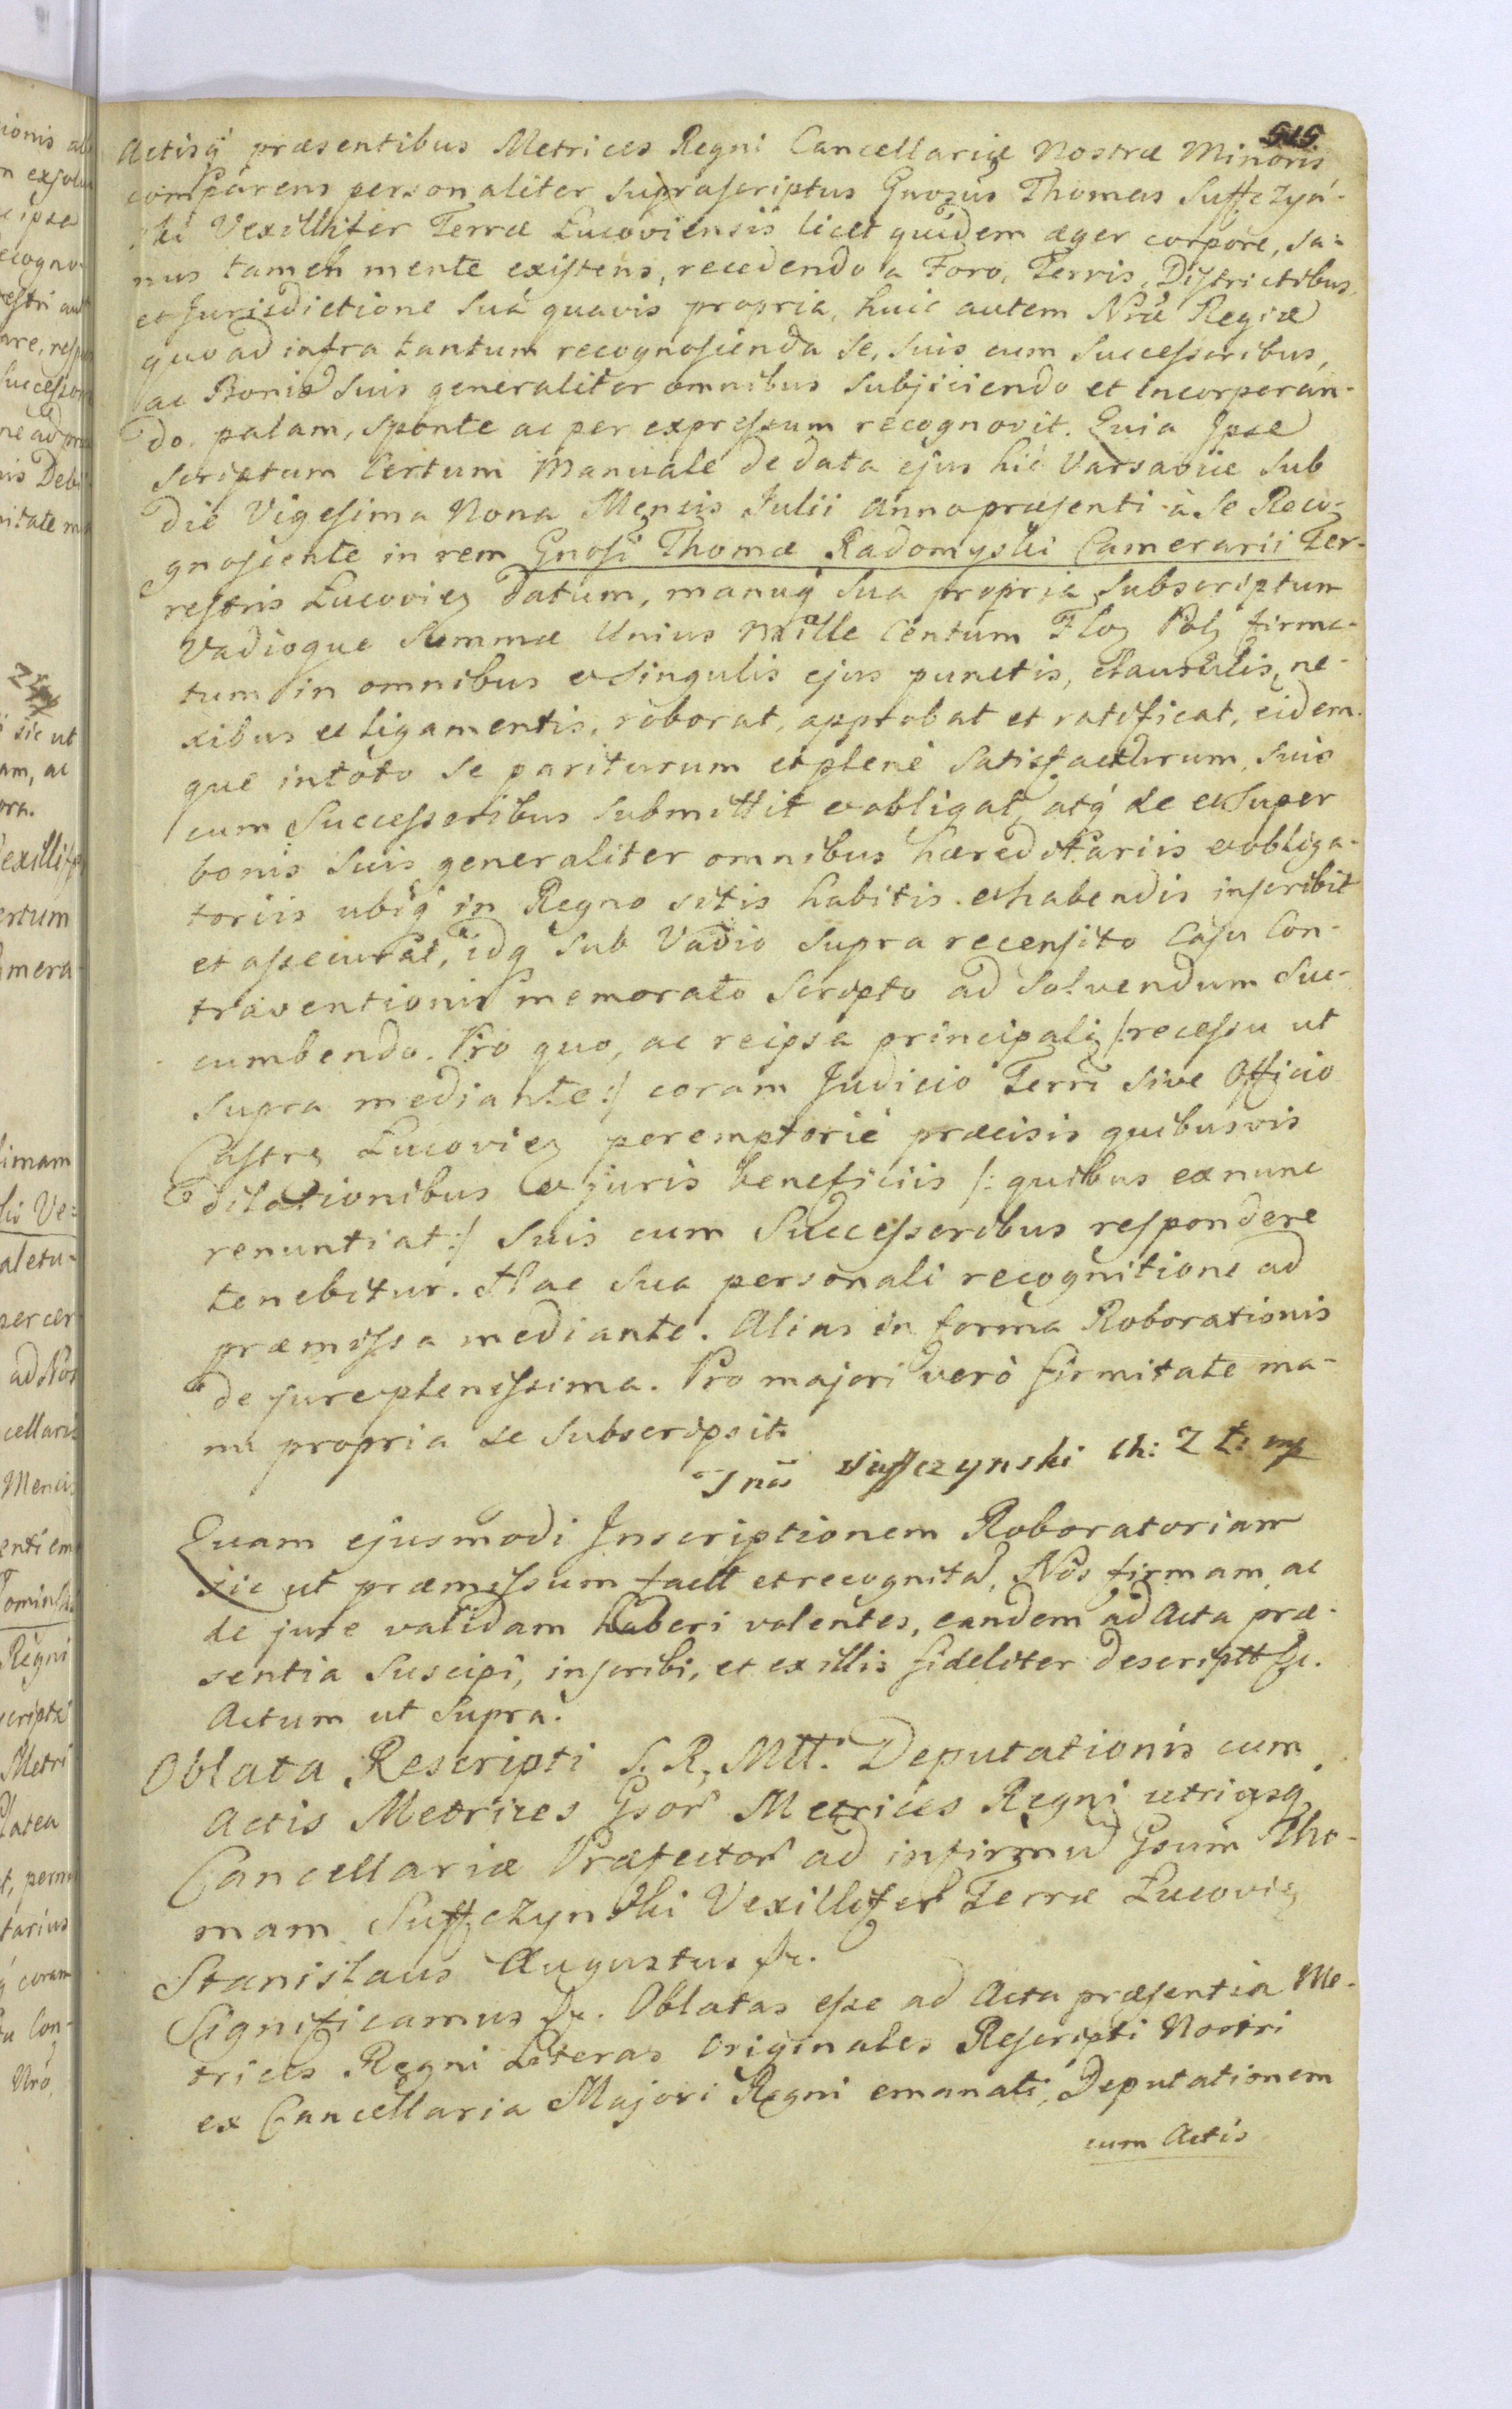 515
Actisq́ præsentibus Metrices Regni Cancellariæ Nostræ Minoris
comparens personaliter suprascriptus Gnosus Thomas Suffczyń-
ski Vexillifer Terræ Lucoviensis licet quidem æger corpore, sa-
nus tamen mente existens, recedendo a Foro, Terris, Districtibus,
et Jurisdictione Suâ quavis propria, huic autem Nræ Regiæ
quo ad infra tantum recognoscenda se, suis cum Successoribus,
ac Bonis Suis generaliter omnibus Subjiciendo et Incorporan-
do. palam, sponte ac per expressum recognovit. Quia Ipse
Scriptum Certum Manuale de data ejus hic Varsaviæ Sub
die Vigesima Nona Mensis Julii Anno præsenti à Se Reco-
gnoscente in rem Gnosi Thomæ Radomyski Camerarii Ter-
restris Lucovien datum, manuq́ Sua propria Subscriptum
Vadioque Summæ Unius Mille Centum Flor Pol firma-
tum in omnibus et Singulis ejus punctis, clausulis, ne-
xibus et ligamentis, roborat, approbat et ratificat, eidem-
que in toto Se pariturum et plenè Satisfacturum, Suis
cum Successoribus Submittit et obligat, atq́ de et Super
bonis Suis generaliter omnibus hæreditariis et obliga-
toriis ubiq́ in Regno sitis habitis et habendis inscribit
et assecurat, idq́ Sub Vadio Supra recensito Casu Con-
traventionis memorato Scripto ad Solvendum Suc-
cumbendo. Pro quo, ac reipsa principali /:recessu ut
Supra mediante:/ coram Judicio Terri Sive Officio
Castren Lucovien peremptoriè præcisis quibusvis
dilationibus et juris beneficiis /: quibus ex nunc
renuntiat:/ Suis cum Successoribus respondere
tenebitur. Hac Sua personali recognitione ad
præmissa mediante. Alias in forma Roborationis
de jure plenissima. Pro majori verò firmitate ma-
nu propria se Subscripsit.
Suffczynski Ch: Z Ł: mp
Quam ejusmodi Inscriptionem Roboratoriam
sic ut præmissum factt et recognitā, Nos firmam ac
de jure validam haberi volentes, eandem ad Acta præ-
sentia Suscipi, inscribi, et ex illis fideliter descriptt &c.
Actum ut Supra.
Oblata Rescripti S. R. Mtt. Deputationis cum
Actis Metrices Gsor Metrices Regni utriusq́
Cancellariæ Præfector ad infirmū Gsum Tho-
mam Suffczynski Vexillifer Terræ Lucovien
Stanislaus Augustus &c.
Significamus &c. Oblatas esse ad Acta præsentia Me-
trices Regni Literas Originales Rescripti Nostri
ex Cancellaria Majori Regni emanati, Deputationem
cum Actis